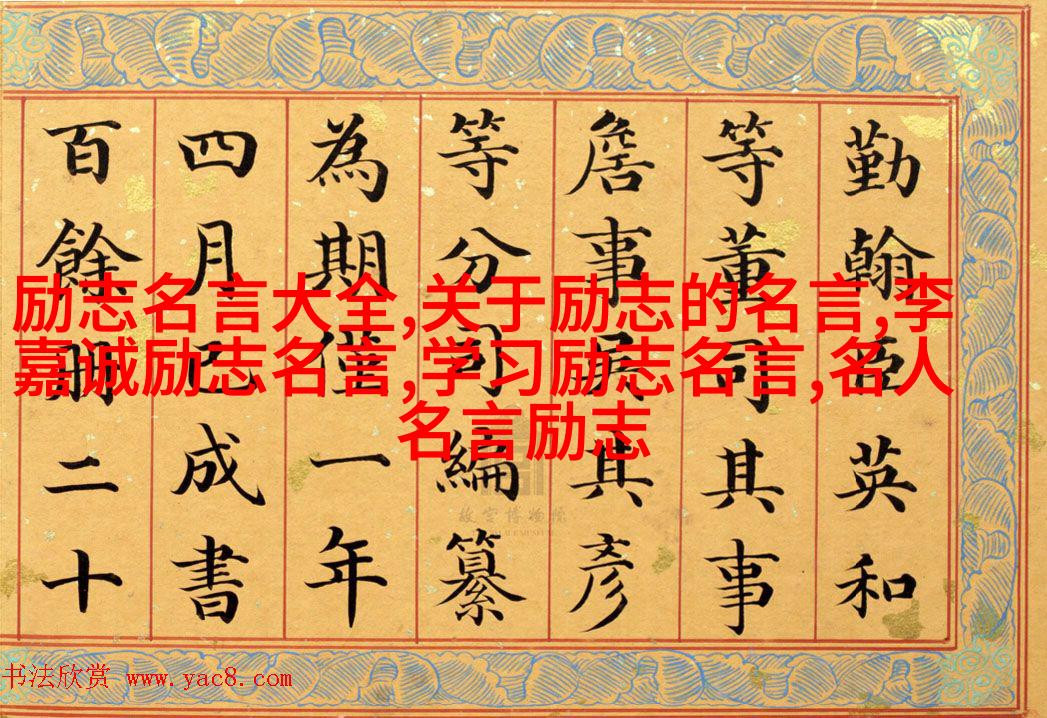 勤翰臣英和
等董司其事
詹事其彥
等分司編纂
為期僅一年
四月已成書
百餘冊二十
励志名言大全,关于励志的名言,李
嘉诚励志名言,学习励志名言,名人
名言励志
故宫博物院
书法欣赏 www.yac8.com